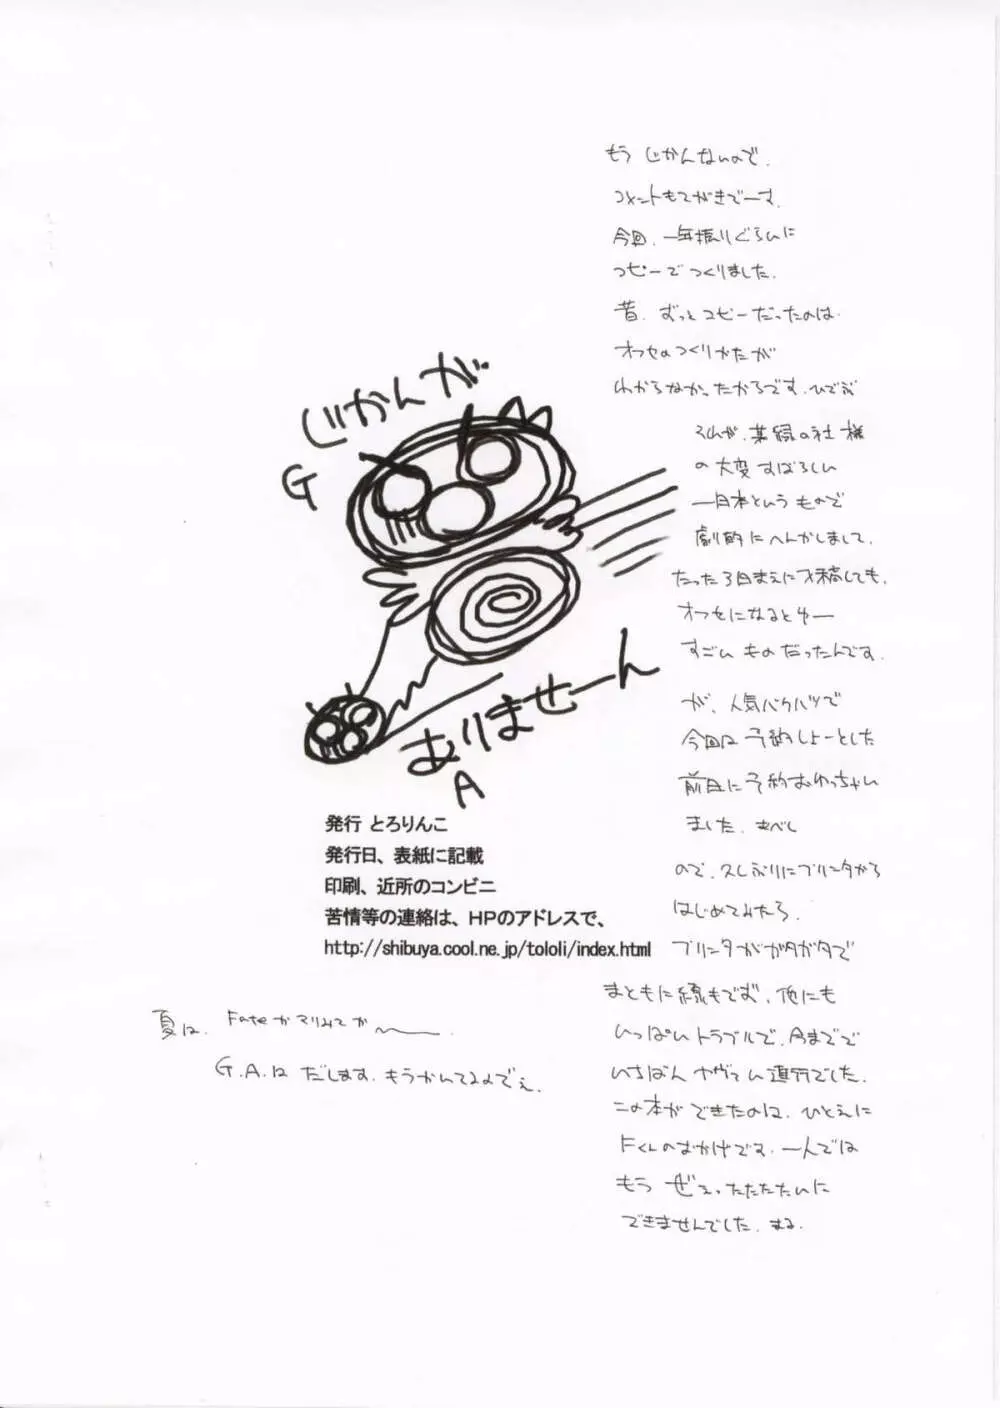 もう じかんないので.
コメントもてがきでーす.
今回. 一年振りぐらいに
コピーでつくりました.
昔. ずっとコピーだったのは.
オフセのつくりかたが
わからなかったからです.
の大変すばらしい
一日本というもので
劇的にへんかしまして.
たった3日まえに入稿しても.
オフセになるとゆー
すごいものだったんです.
が、人気バクハツで
今回は予約しよーとした
前日に予約おわっちゃい
ました.
ので、久しぶりにプリンタから
はじめてみたら.
プリンタがガタガタで
まともに線もでず. 他にも
いっぱいトラブルで. 今までで
いちばん ヤヴァい進行でした.
この本ができたのは. ひとえに
Fくんのおかげです. 一人では
もう ぜぇったたたたいに
できませんでした. まる.
じかんが
G
ありませーん
A
発行 とろりんこ
発行日、表紙に記載
印刷、近所のコンビニ
苦情等の連絡は、HPのアドレスで、
http://shibuya.cool.ne.jp/tololi/index.html
夏は. Fateかマリみてか〜.
G.A.は だします. もうかんてるのでぇ.